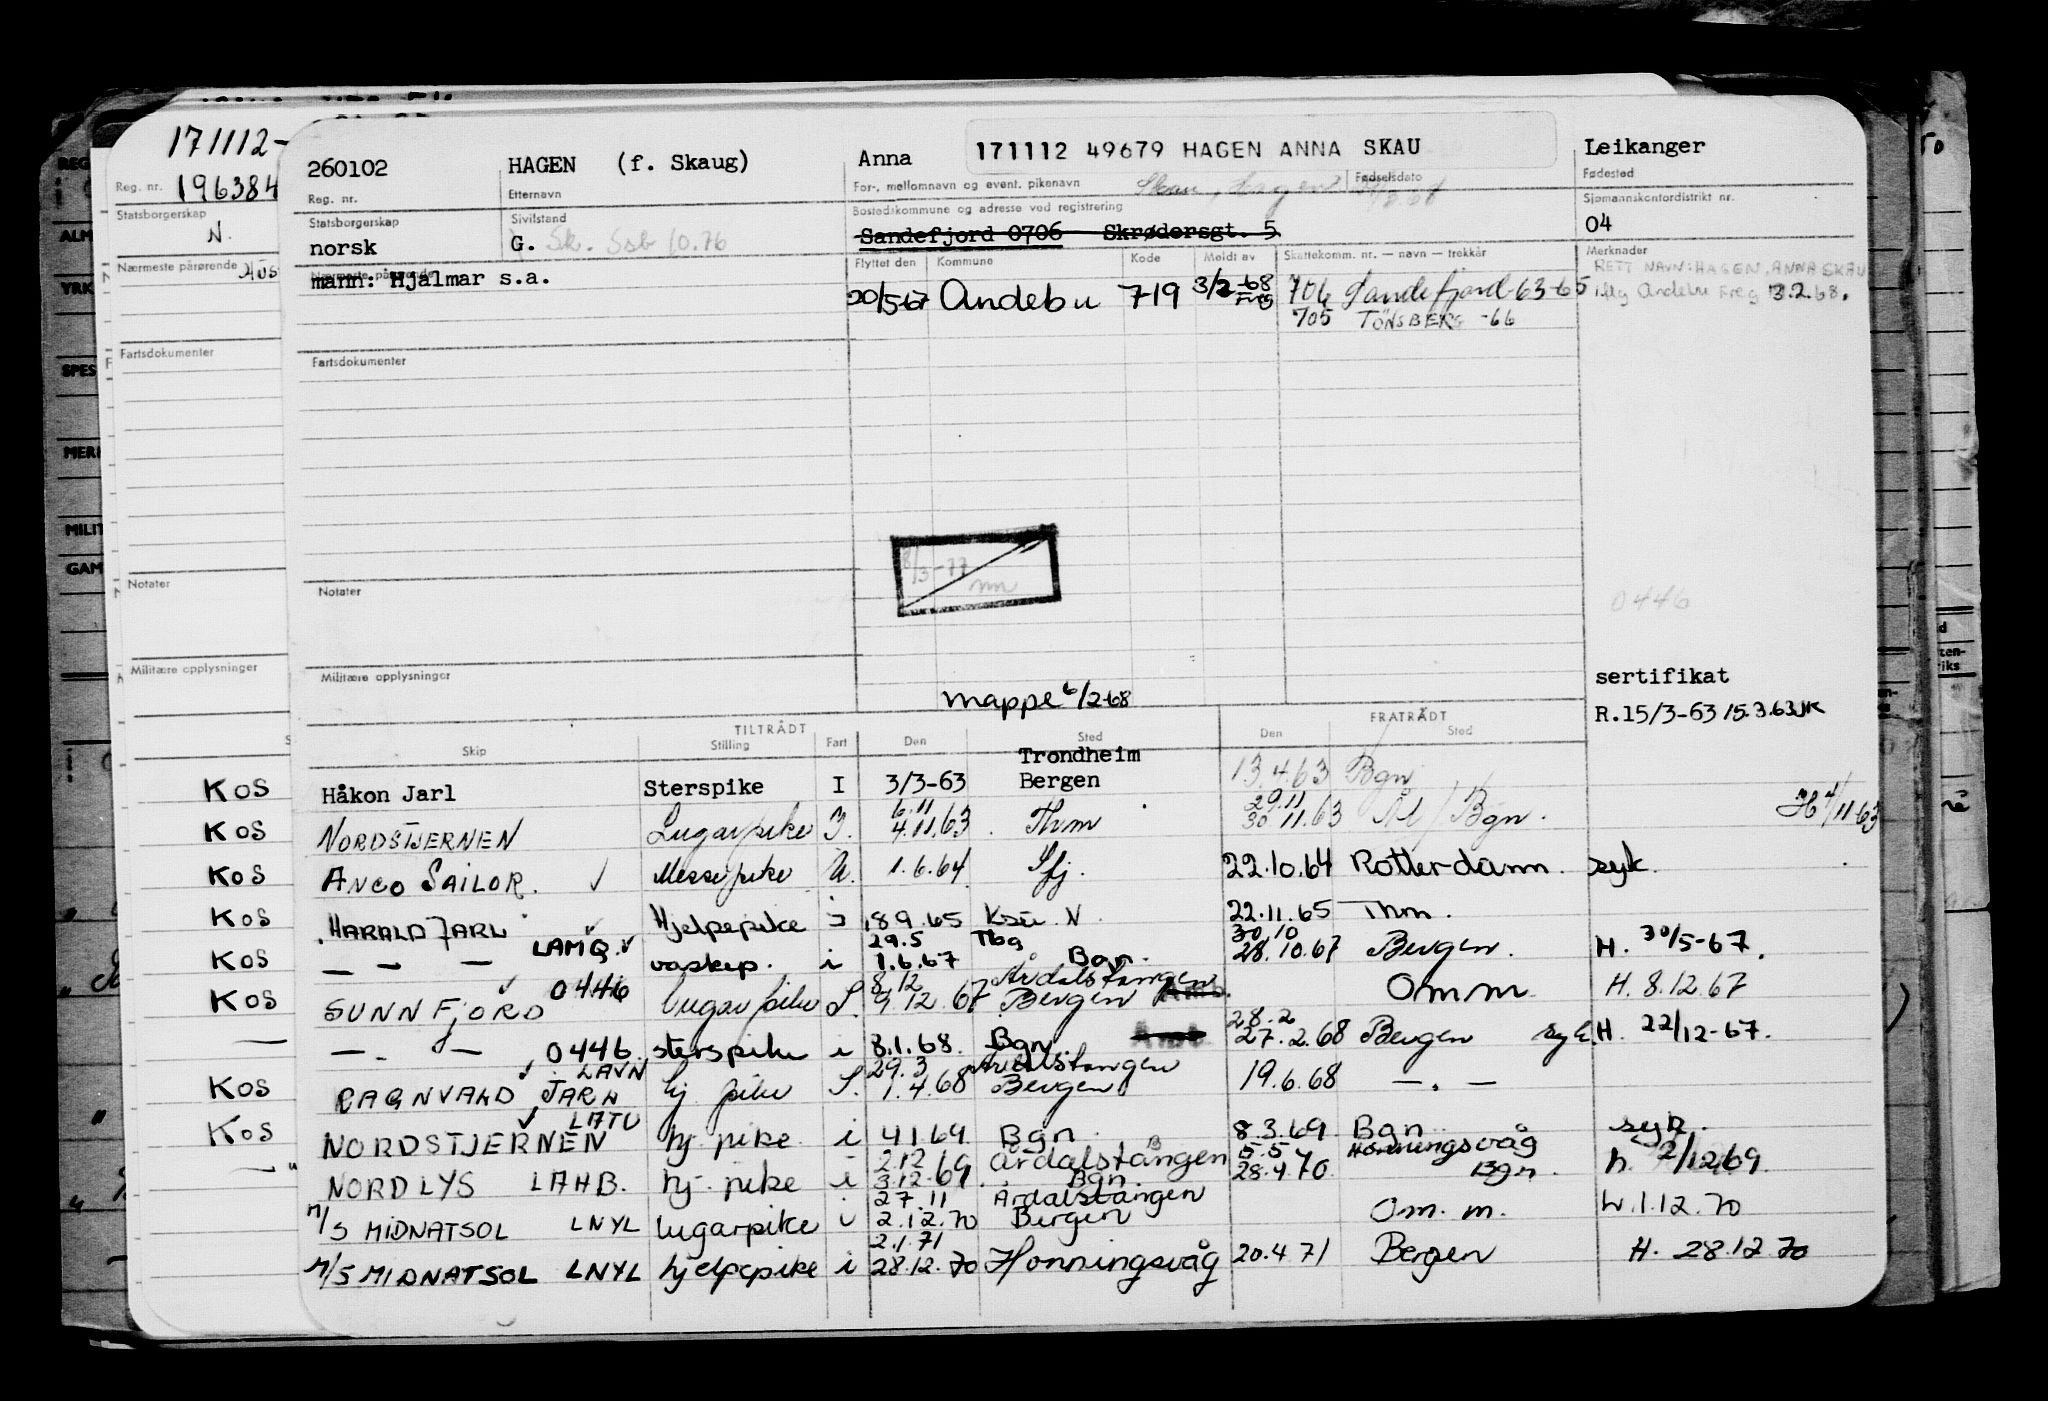 171112-
Reg. nr. 196384
Statsborgerskap
N.
Nærmeste pårørende
Fartsdokumenter
Notater
Militære opplysninger
260102 HAGEN (f. Skaug) Anna 171112 49679 HAGEN ANNA SKAU Leikanger
Reg. nr. Etternavn For-, mellomnavn og event. pikenavn Fødselsdato Fødested
Statsborgerskap Sivilstand Bostedskommune og adresse ved registrering Sjømannskontordistrikt nr.
norsk G. Sk. Ssb 10.76 Sandefjord 0706 Skrødersgt. 5 04
Nærmeste pårørende Flyttet den Kommune Kode Meldt av Skattekomm. nr. — navn — trekkår Merknader
mann: Hjalmar s.a. RETT NAVN: HAGEN, ANNA SKAU
20/5-67 Andebu 719 3/2-68 Freg 706 Sandefjord 63-65 iflg Andebu Freg 3.2.68.
705 TÖNSBERG -66
Fartsdokumenter
8/3-77
Notater
0446
Militære opplysninger
sertifikat
mappe 6/2-68
R.15/3-63 15.3.63 JK
TILTRÅDT FRATRÅDT
Skip Stilling Fart Den Sted Den Sted
Trondheim
KOS Håkon Jarl Sterspike I 3/3-63 Bergen 13.4.63 Bgn
6.11 29.11
KOS NORDSTJERNEN Lugarpike I. 4.11.63 Thm 30 11.63 Ål / Bgn. H 4/11 63
KOS ANCO SAILOR. Messepike U. 1.6.64 Sfj. 22.10.64 Rotterdam. syk.
KOS HARALD JARL Hjelpepike i 18 9.65 Ksu. N 22.11.65 Thm.
29.5 Tbg 30.10
KOS — — — LAMQ. vaskep. i 1.6.67 Bgn. 28.10.67 Bergen. H. 30/5-67.
8.12 Årdalstangen
KOS SUNNFJORD 0446 lugarpike I. 9.12.67 Bergen Omm H. 8.12.67
28.2
— — . — 0446. sterspike i 8.1.68. Bgn. 27.2.68 Bergen syk. H. 22/12-67.
LAVN 29.3 Årdalstangen
KOS RAGNVALD JARL hj pike I. 1.4.68 Bergen 19.6.68 — . —
LATU
KOS NORDSTJERNEN hj. pike i 4.1.69 Bgn. 8.3.69 Bgn. syk.
2.12 Årdalstangen 5.5 Honningsvåg
— " NORDLYS LAHB. hj. pike i 3.12.69. Bgn. 28.4.70 Bgn. h. 2/12 69
27.11 Årdalstangen
M/S MIDNATSOL LNYL lugarpike i 2.12.70 Bergen Om. m. h. 1.12.70
2.1.71
M/S MIDNATSOL LNYL hjelpepike i 28.12.70 Honningsvåg 20.4 71 Bergen H. 28.12 70